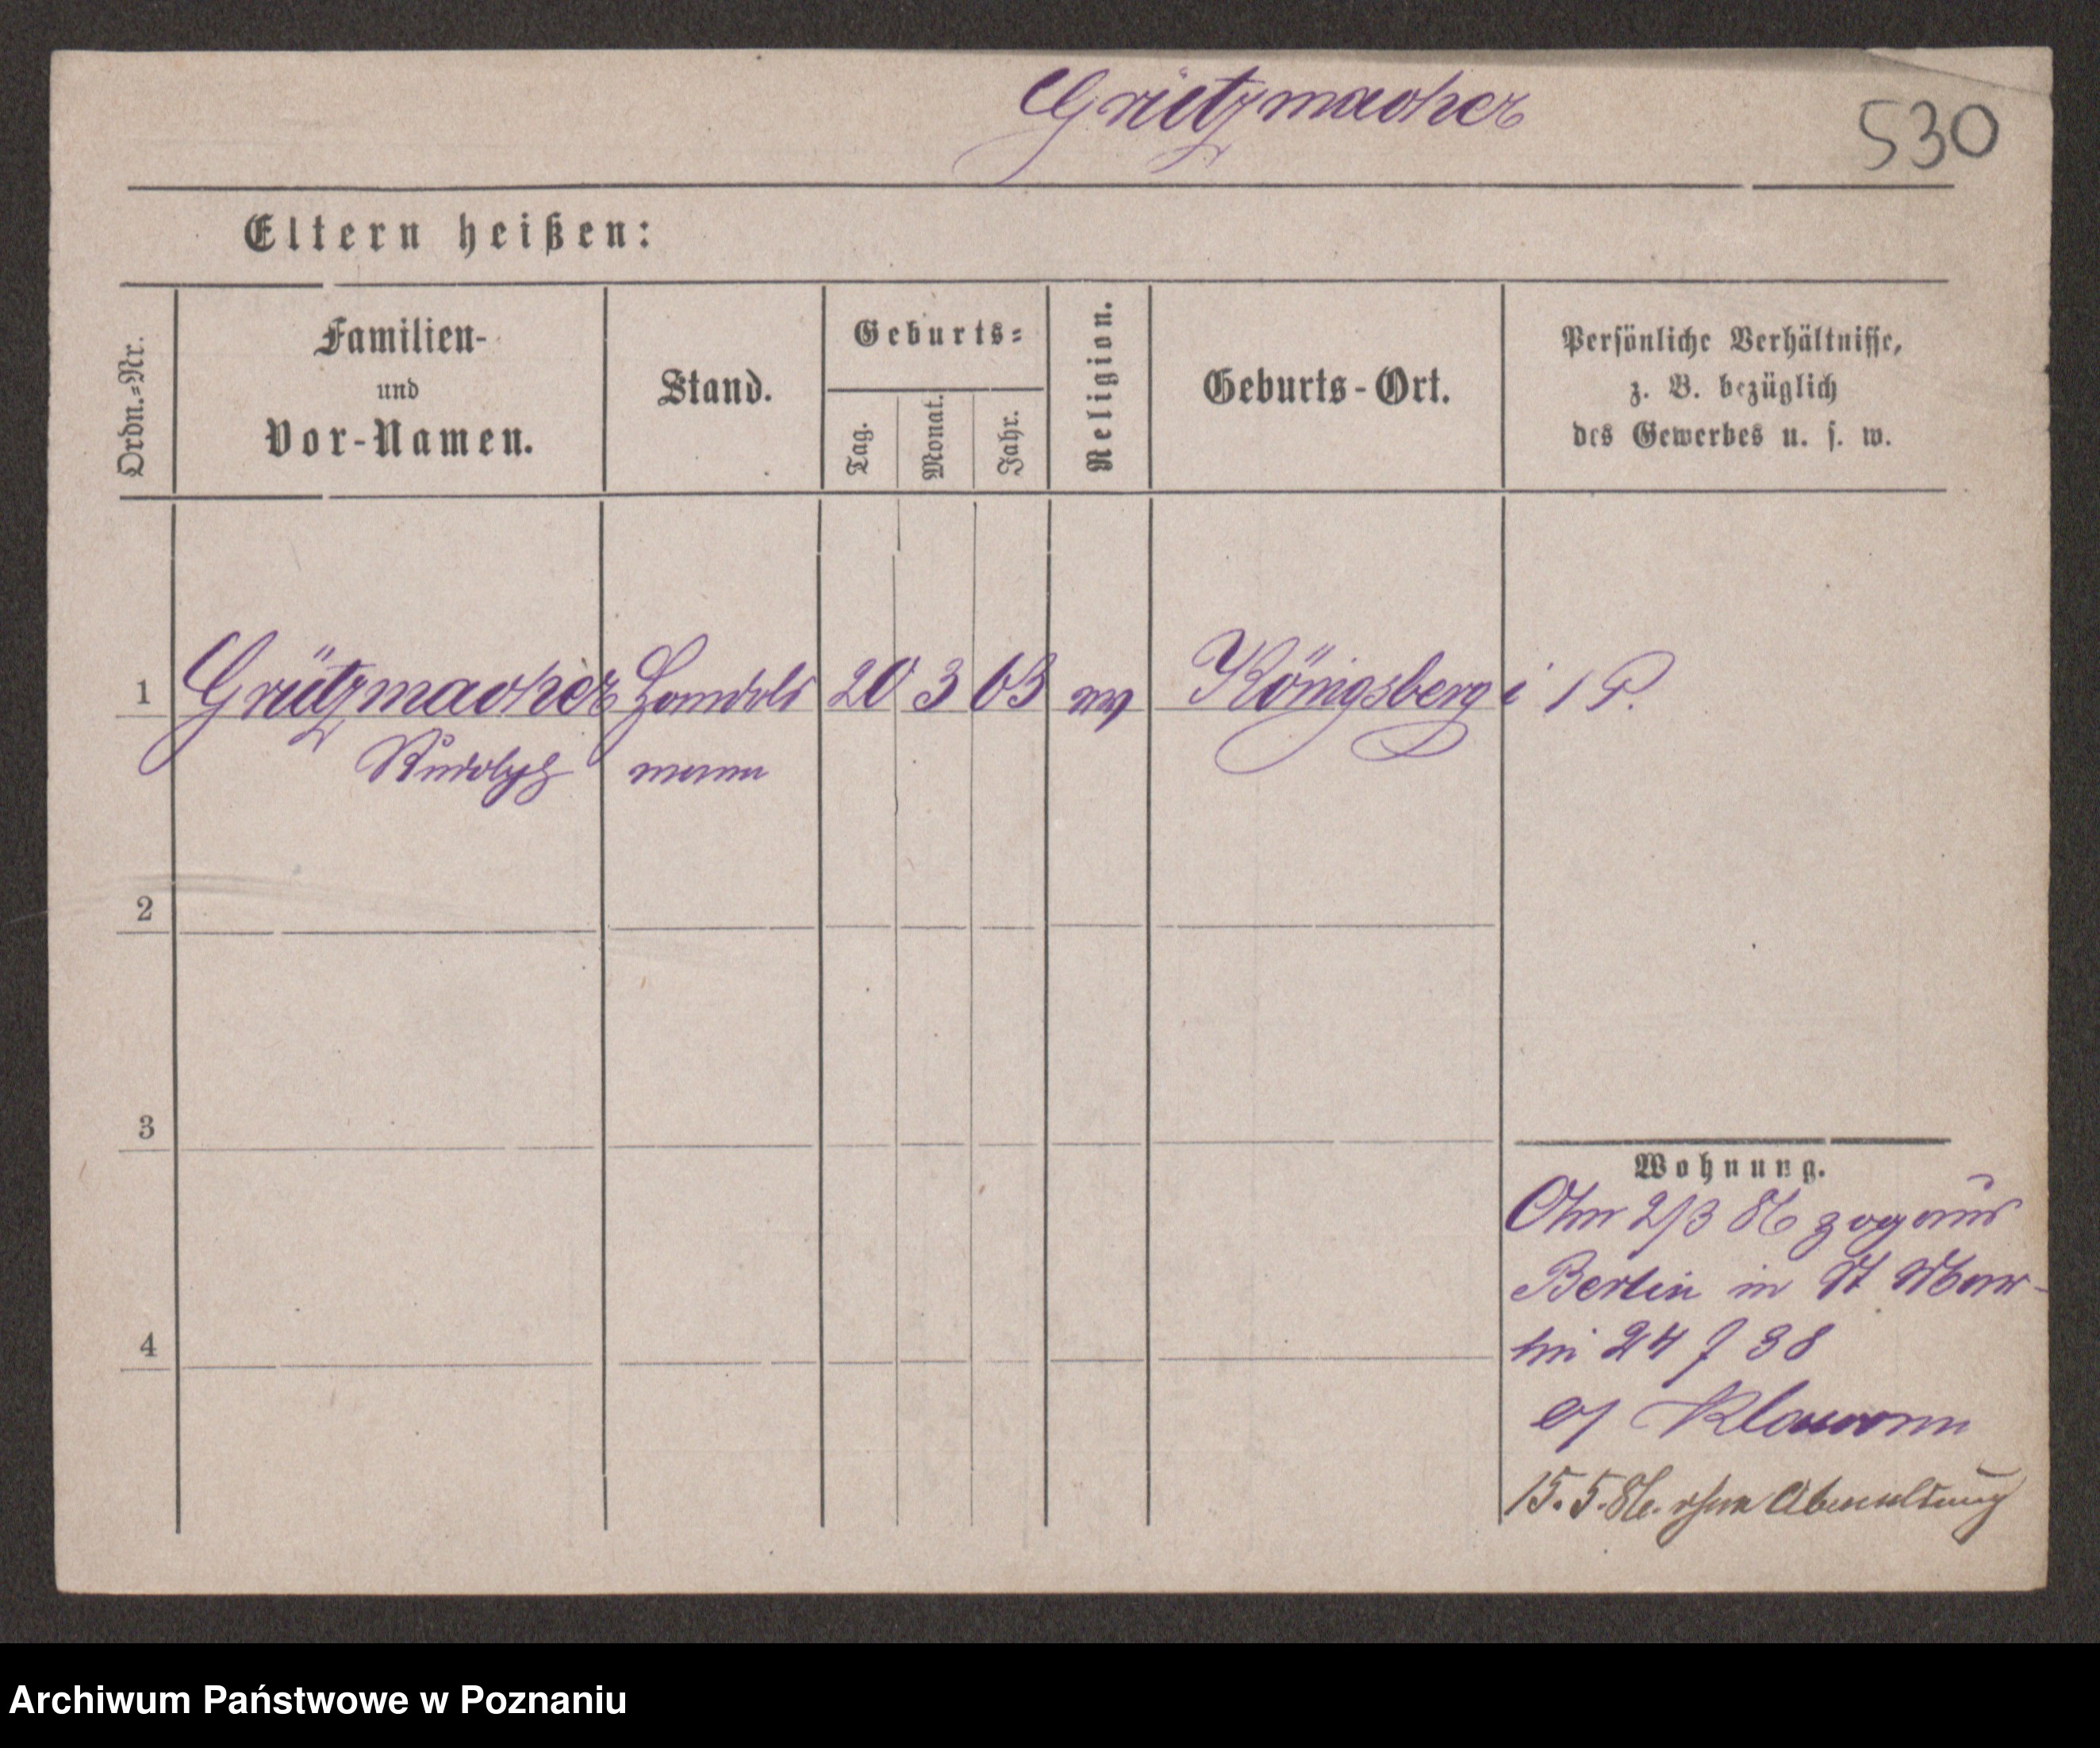 Grützmacher
530
Eltern heißen:
Ordn.-Nr.
Familien-
und
Vor-Namen.
Stand.
Geburts-
Tag.
Monat.
Jahr.
Religion.
Geburts-Ort.
Persönliche Verhältnisse,
z. B. bezüglich
des Gewerbes u. s. w.
1 Grützmacher Handels 20 3 63 ev Königsberg i / P.
Rudolph mann
2
3
Wohnung.
Am 2/3 86 zog aus
Berlin in St Mar-
tin 24 f 38
b/ Klawonn
4
15.5.86. ohne Abmeldung
Archiwum Państwowe w Poznaniu